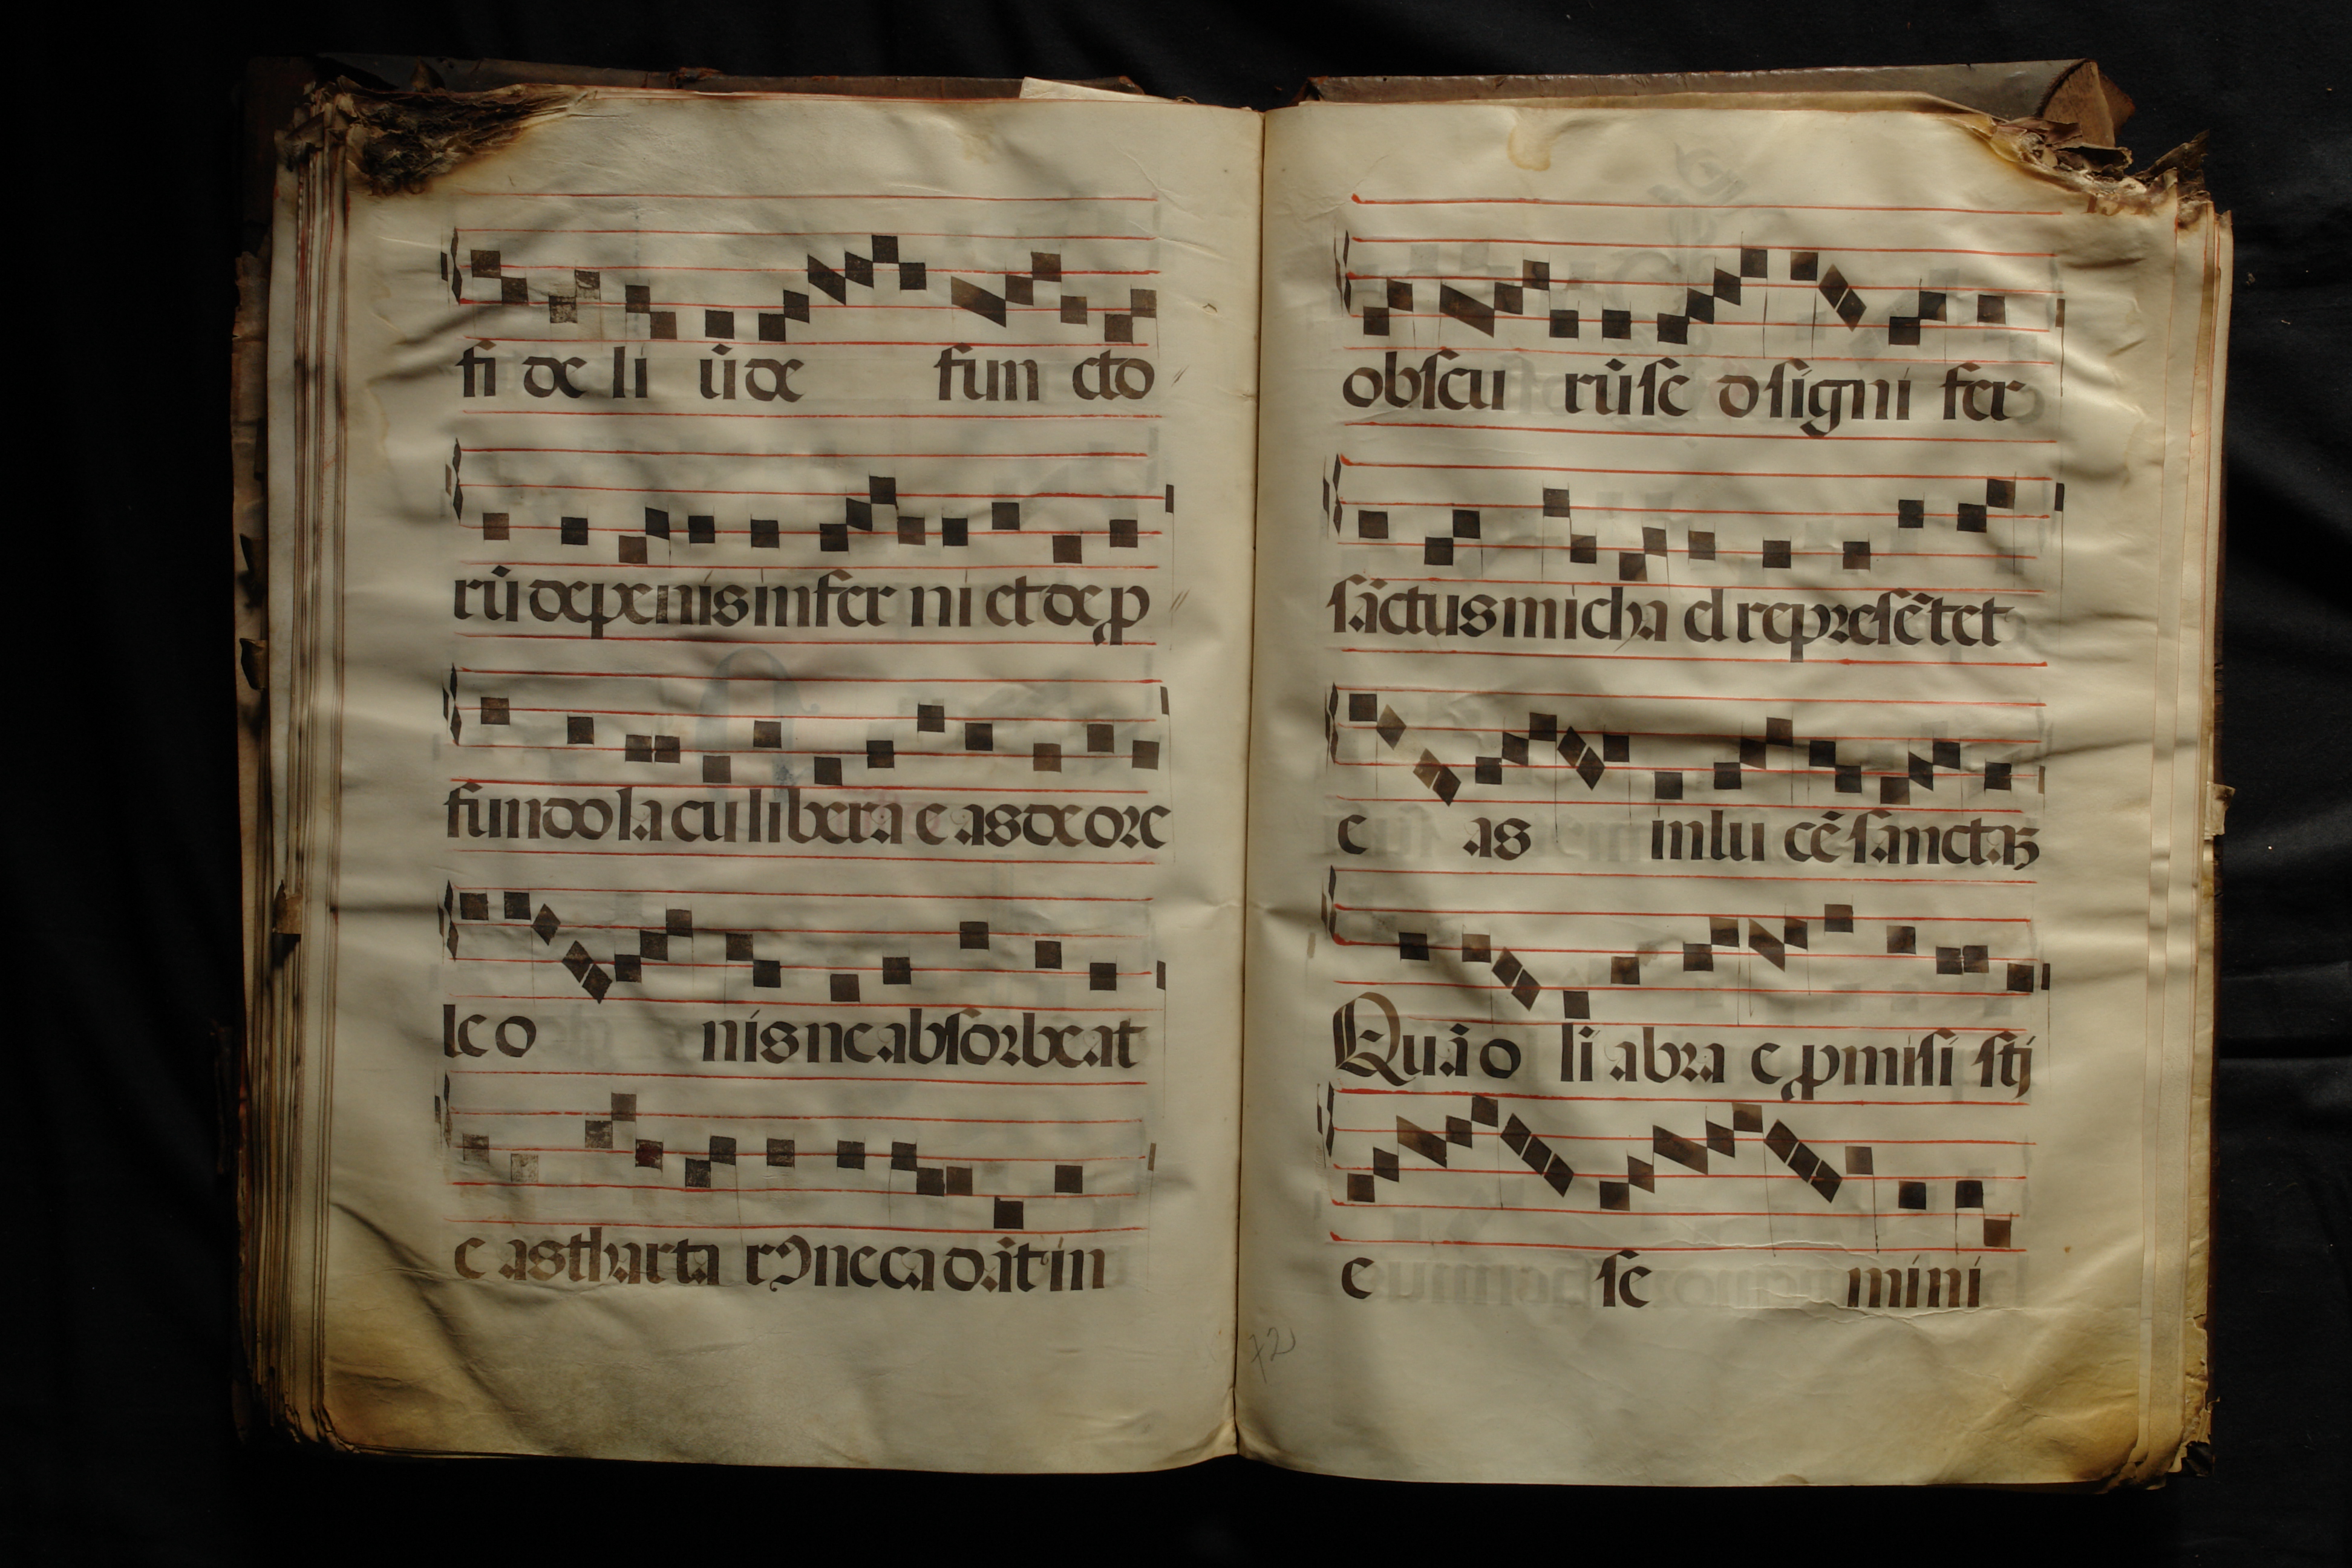 fi de li ũ de fun cto
rũ de penis infer ni et de ꝓ
fundo la cu libera e as de ore
le o nis ne absorbeat
e as thar ta rꝰ ne ca dãt in
obscu rũ se d signi fer
sãctus micha el represẽtet
e as in lu cẽ sanctaꝫ
Quã o li abra e ꝓmisi sti
e se mini
72